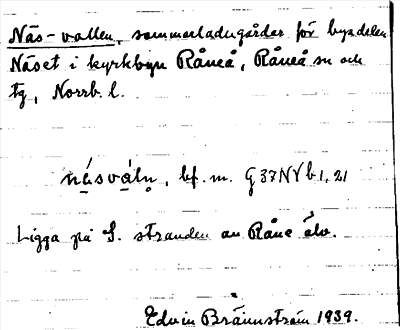 Näs-vallen, sommarladugårdar för byadelen
Näset i kyrkbyn Råneå, Råneå sn och
tg, Norrb. l.
nä́svàlņ, bf. m. G37NVb1,21
Ligga på S. stranden av Råne älv.
Edvin Brännström 1939.